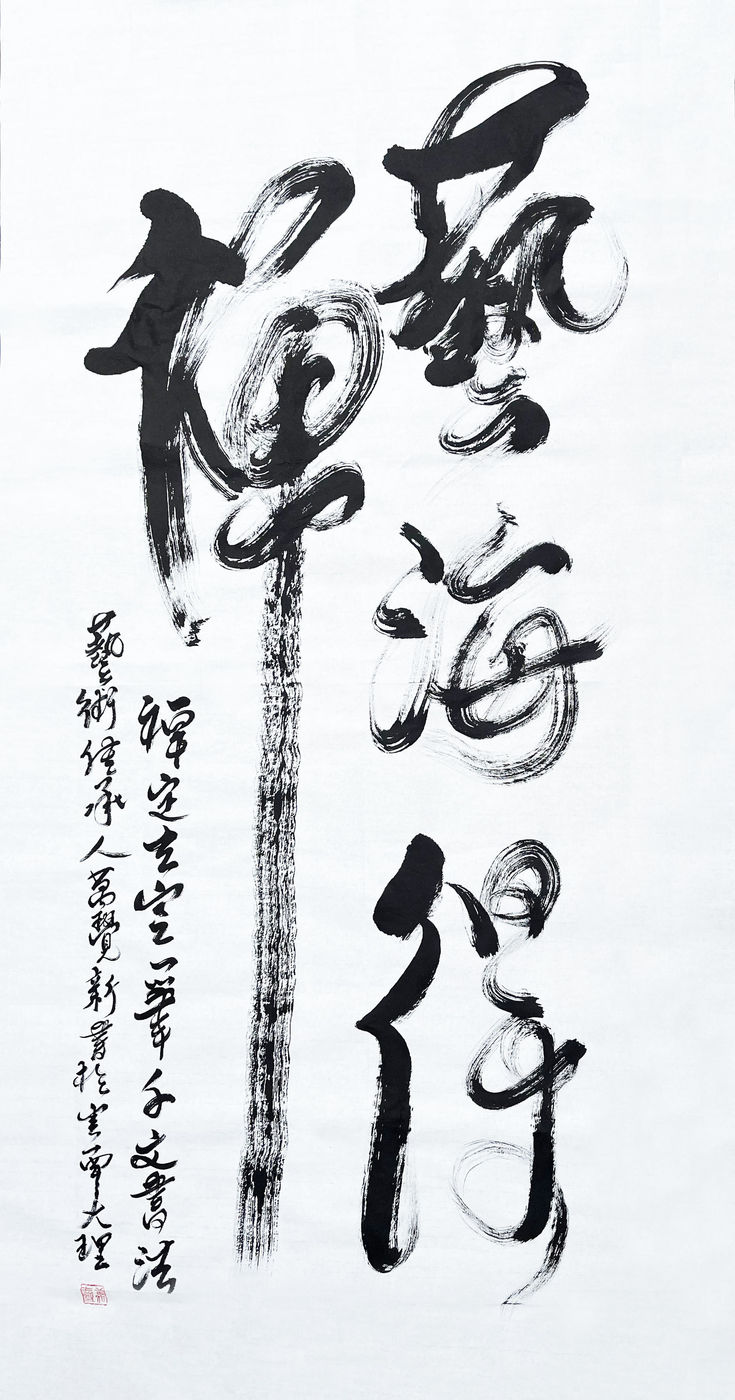 藝海得
禪
禪定玄空一筆千文書法
藝術傳承人萬覺新書於雲南大理